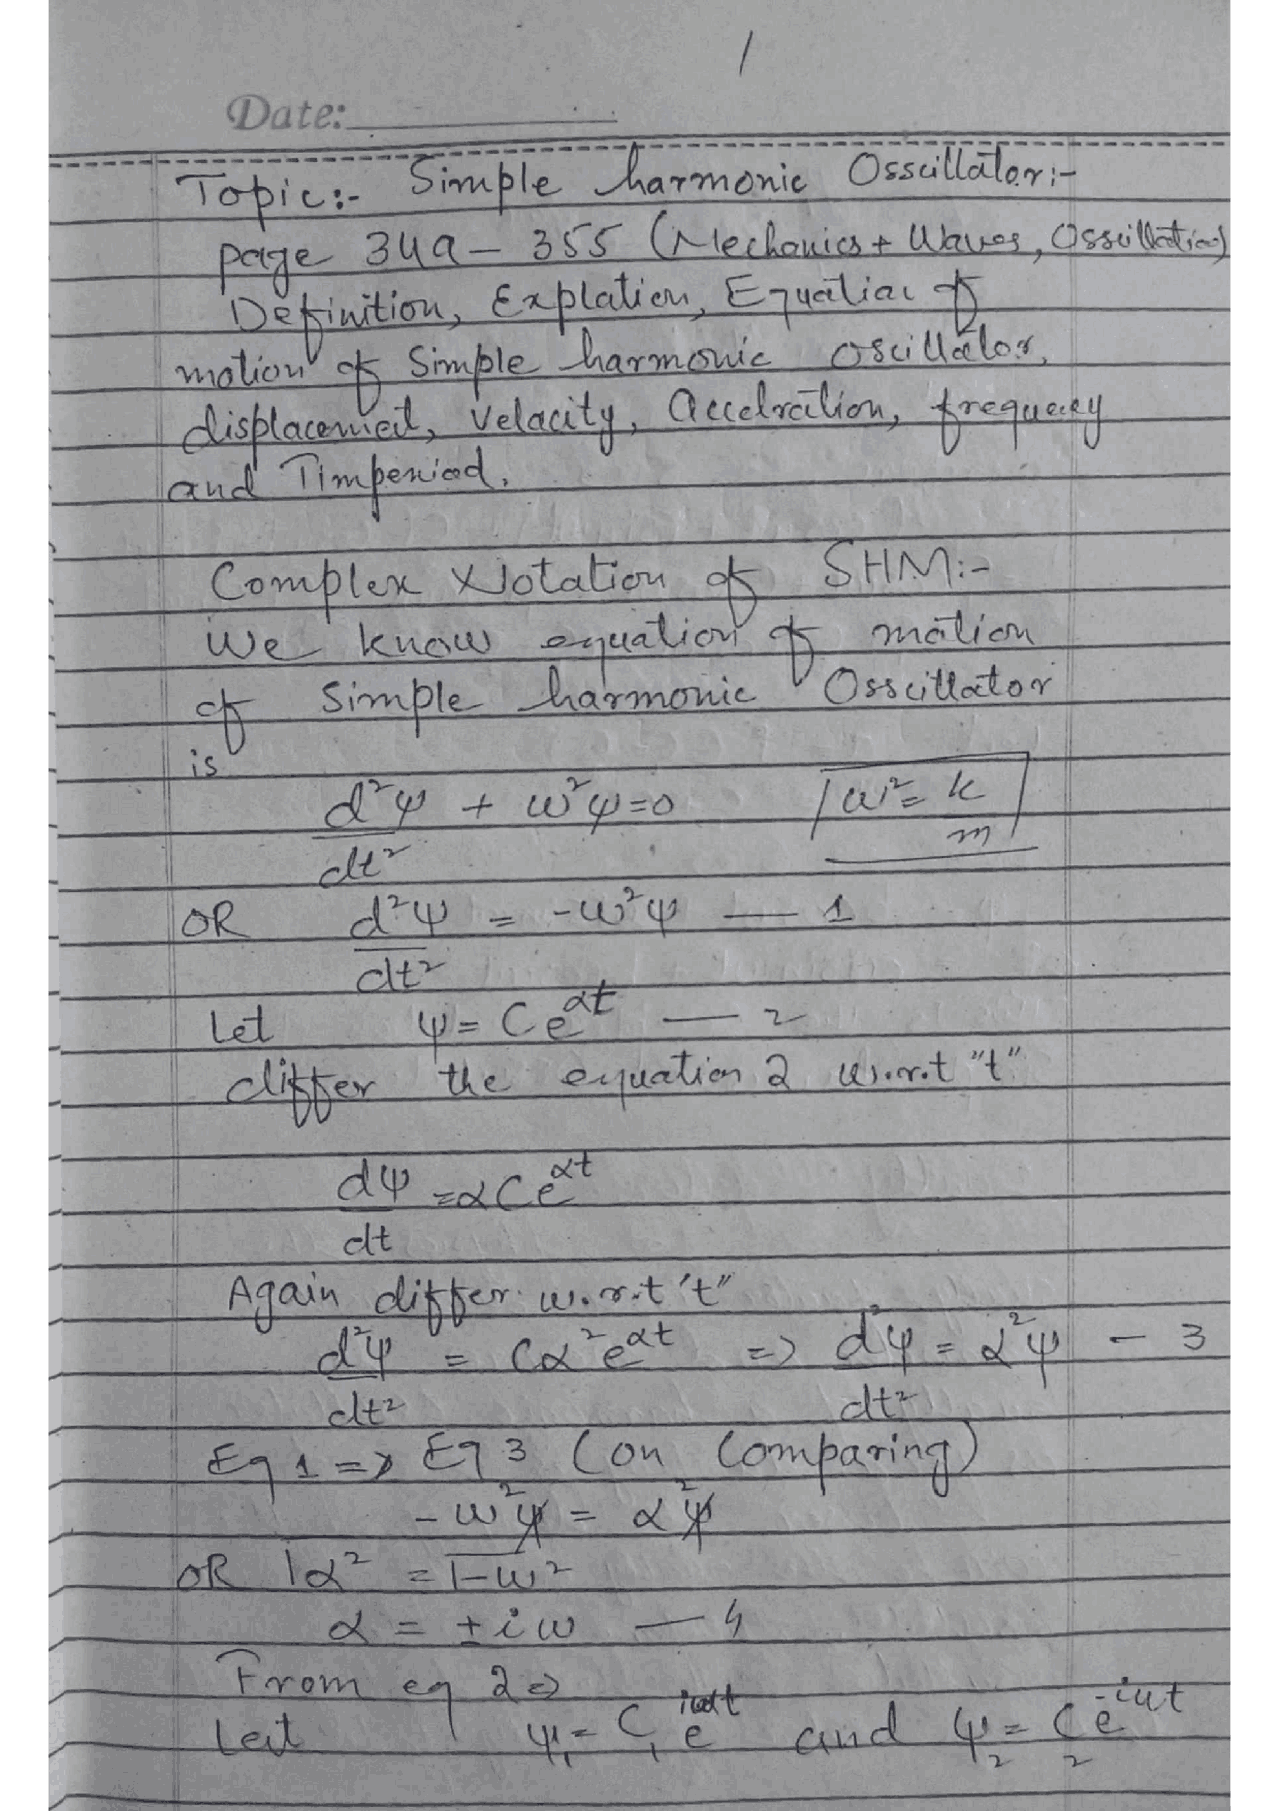 1
Date:
Topic:- Simple harmonic Osscillator:-
page 349 - 355 (Mechanics + Waves, Ossillation)
Definition, Explation, Equation of
motion of Simple harmonic oscillator,
displacement, velocity, accelration, frequency
and Timperiod.
Complex Notation of SHM:-
We know equation of motion
of Simple harmonic Osscillator
is
d²ψ/dt² + ω²ψ=0 ω²= k/m
OR d²ψ/dt² = -ω²ψ — 1
Let ψ = Ce^αt — 2
differ the equation 2 w.r.t "t"
dψ/dt =αCe^αt
Again differ. w.r.t 't"
d²ψ/dt² = Cα²e^αt => d²ψ/dt² = α²ψ - 3
Eq 1 => Eq 3 (on Comparing)
-ω²ψ = α²ψ
OR √α² = √-ω²
α = ±iω — 4
From eq 2=>
Let ψ₁ = C₁e^iωt and ψ₂ = C₂e^-iωt